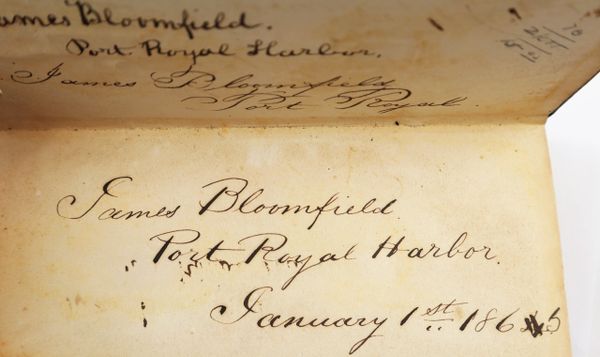 James Bloomfield.
Port Royal Harbor.
James Bloomfield
Port Royal
James Bloomfield.
Port Royal Harbor.
January 1st 1865